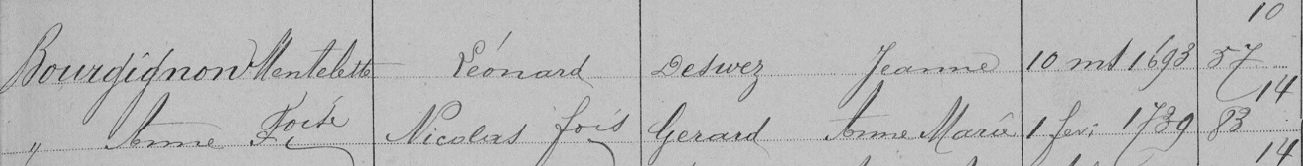 10
Bourgignon Mentelette Léonard Deswez Jeanne 10 mt 1693 57
14
" Anne Foise Nicolas fois Gerard Anne Marie 1 fevr 1739 83
14